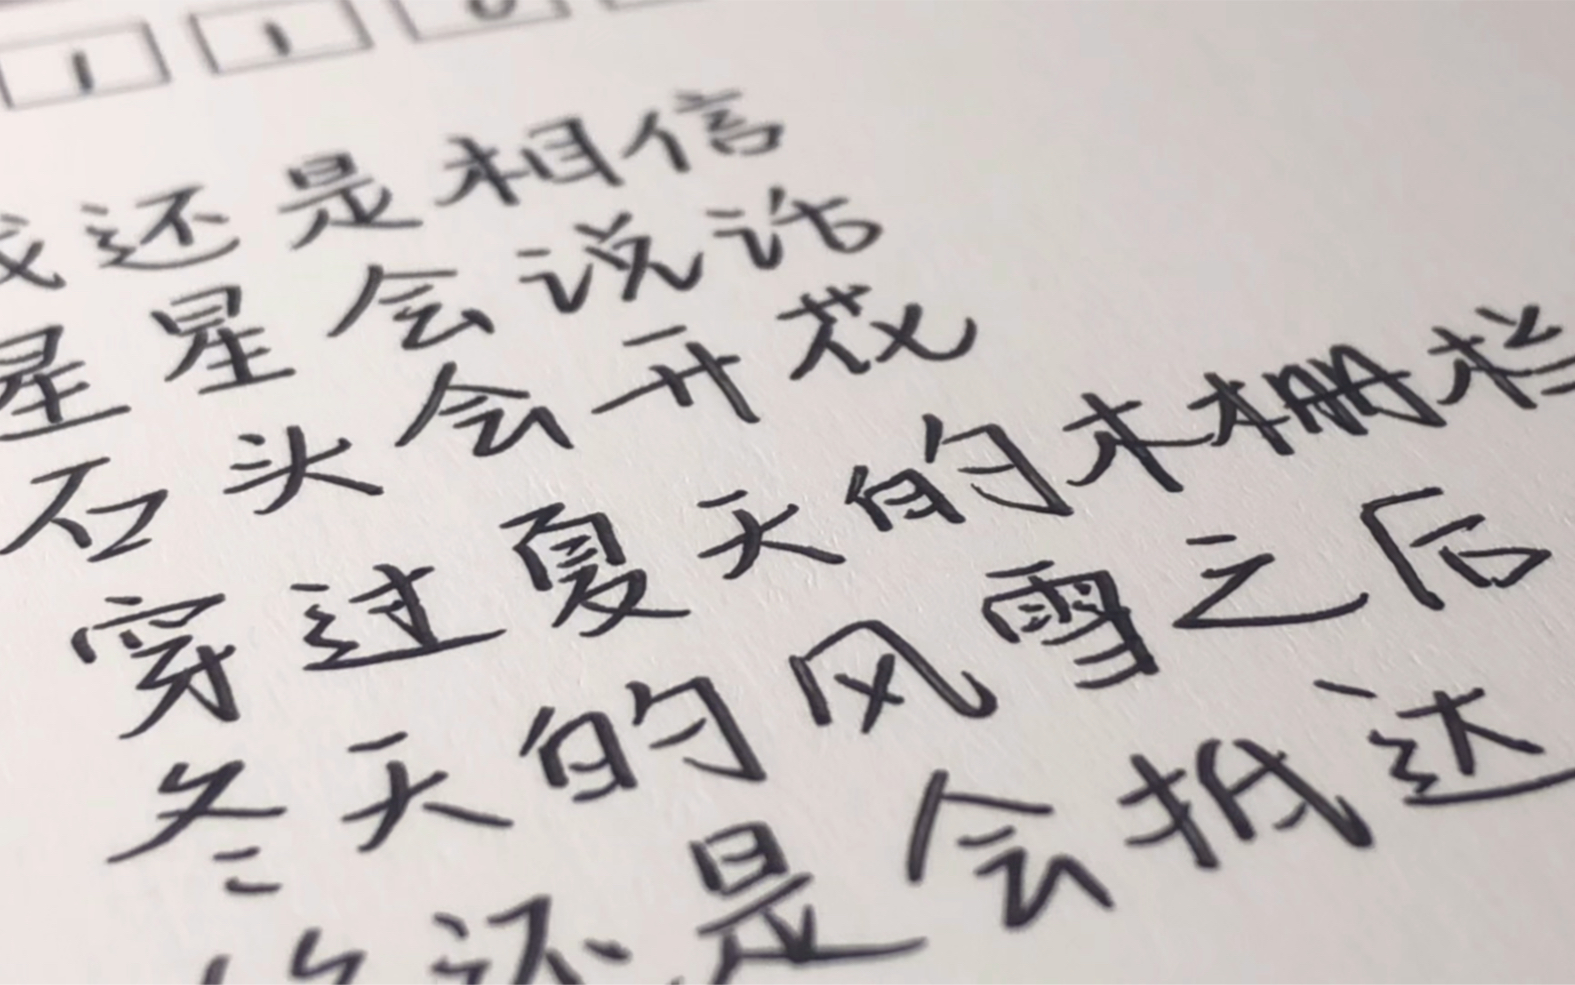 1 1 0
我还是相信
星星会说话
石头会开花
穿过夏天的木栅栏
冬天的风雪之后
你还是会抵达